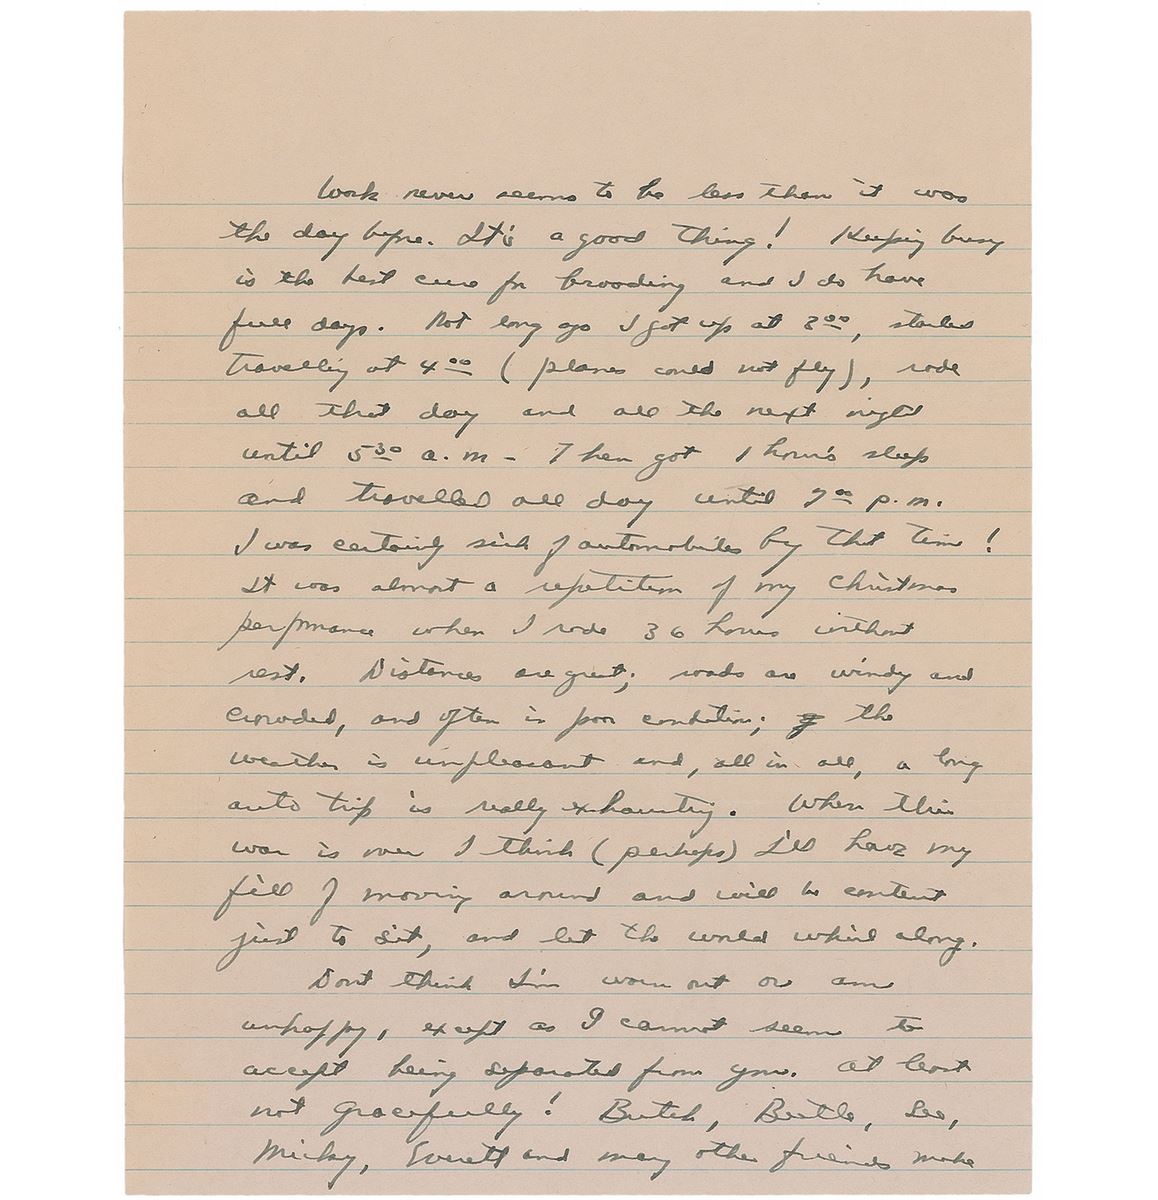 Work never seems to be less than it was
the day before. It's a good thing! Keeping busy
is the best cure for brooding and I do have
full days. Not long ago I got up at 3⁰⁰, started
travelling at 4⁰⁰ (planes could not fly), rode
all that day and all the next night
until 5³⁰ a.m - Then got 1 hour's sleep
and travelled all day until 7⁰⁰ p.m.
I was certainly sick of automobiles by that time!
It was almost a repetition of my Christmas
performance when I rode 36 hours without
rest. Distances are great; roads are windy and
crowded, and often in poor condition; the
weather is unpleasant and, all in all, a long
auto trip is really exhausting. When this
war is over I think (perhaps) I'll have my
fill of moving around and will be content
just to sit, and let the world whirl along.
Dont think I'm worn out or am
unhappy, except as I cannot seem to
accept being separated from you. At least
not gracefully! Butch, Beetle, Lee,
Micky, Everett and many other friends make